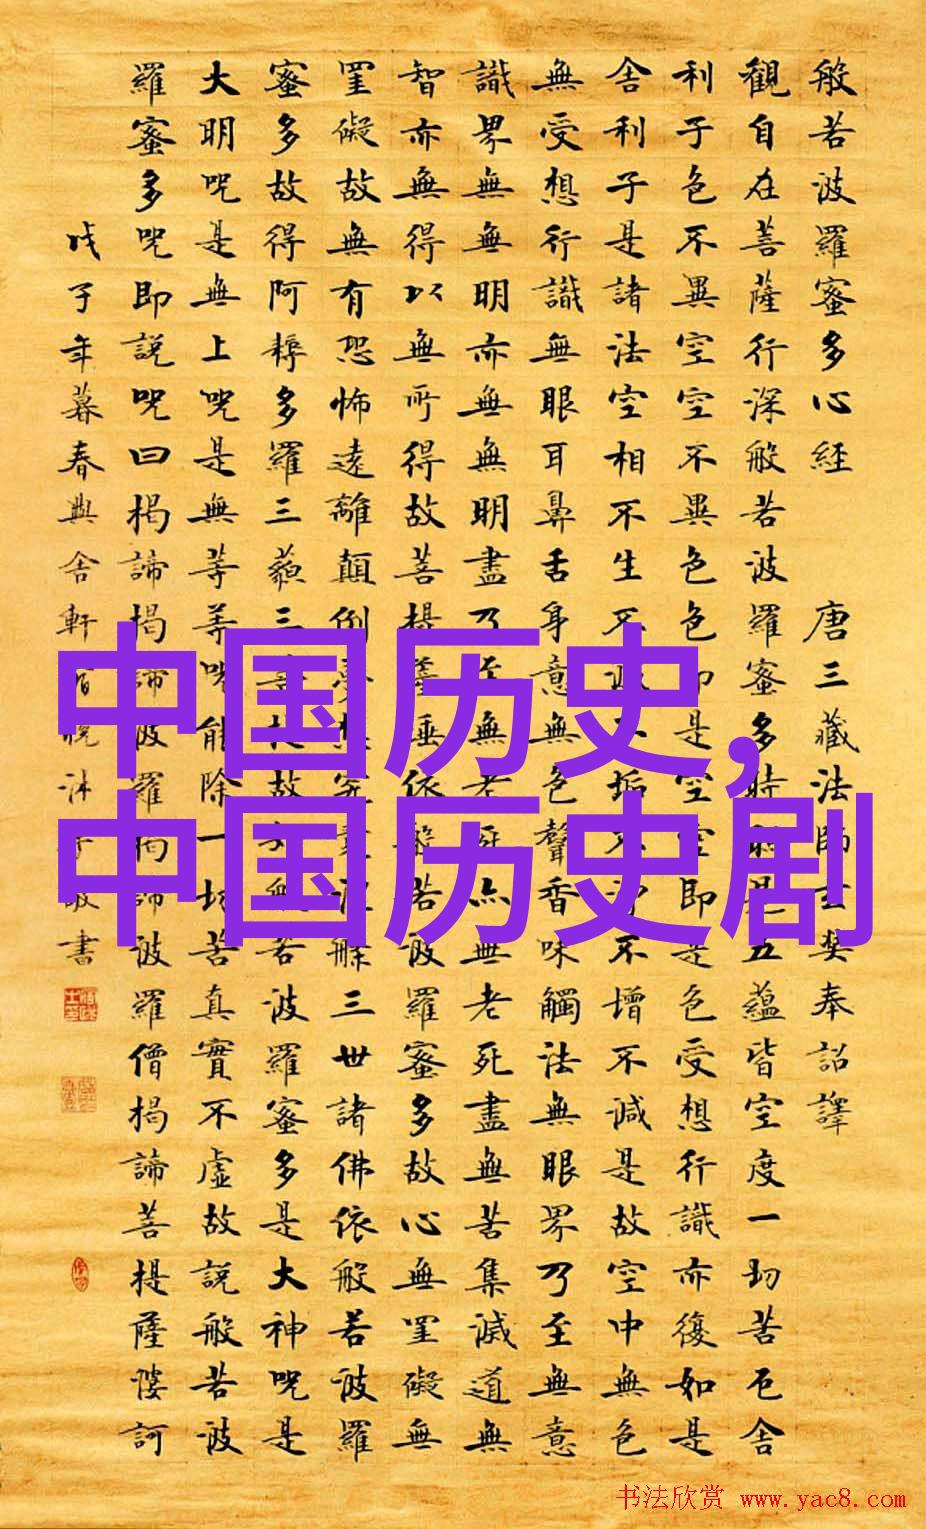 般若波羅蜜多心經 唐三藏法師玄奘奉詔譯
觀自在菩薩行深般若波羅蜜多時照見五蘊皆空度一切苦厄舍
利子色不異空空不異色色即是空空即是色受想行識亦復如是
舍利子是諸法空相不生不滅不垢不淨不增不減是故空中無色
無受想行識無眼耳鼻舌身意無色聲香味觸法無眼界乃至無意
識界無無明亦無無明盡乃至無老死亦無老死盡無苦集滅道無
智亦無得以無所得故菩提薩埵依般若波羅蜜多故心無罣礙無
罣礙故無有恐怖遠離顛倒夢想究竟涅槃三世諸佛依般若波羅
蜜多故得阿耨多羅三藐三菩提故知般若波羅蜜多是大神咒是
大明咒是無上咒是無等等咒能除一切苦真實不虛故說般若波
羅蜜多咒即說咒曰揭諦揭諦波羅揭諦波羅僧揭諦菩提薩婆訶
戊子年暮春興舍軒沐手敬書
中国历史,
中国历史剧
书法欣赏 www.yac8.com